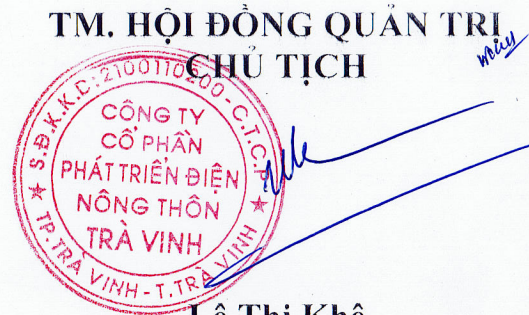 TM. HỘI ĐỒNG QUẢN TRỊ
CHỦ TỊCH
S.Đ.K.K.D: 2100110200 - C.T.C.P
CÔNG TY
CỔ PHẦN
PHÁT TRIỂN ĐIỆN
NÔNG THÔN
TRÀ VINH
TP. TRÀ VINH - T. TRÀ VINH
Lê Thị Khê